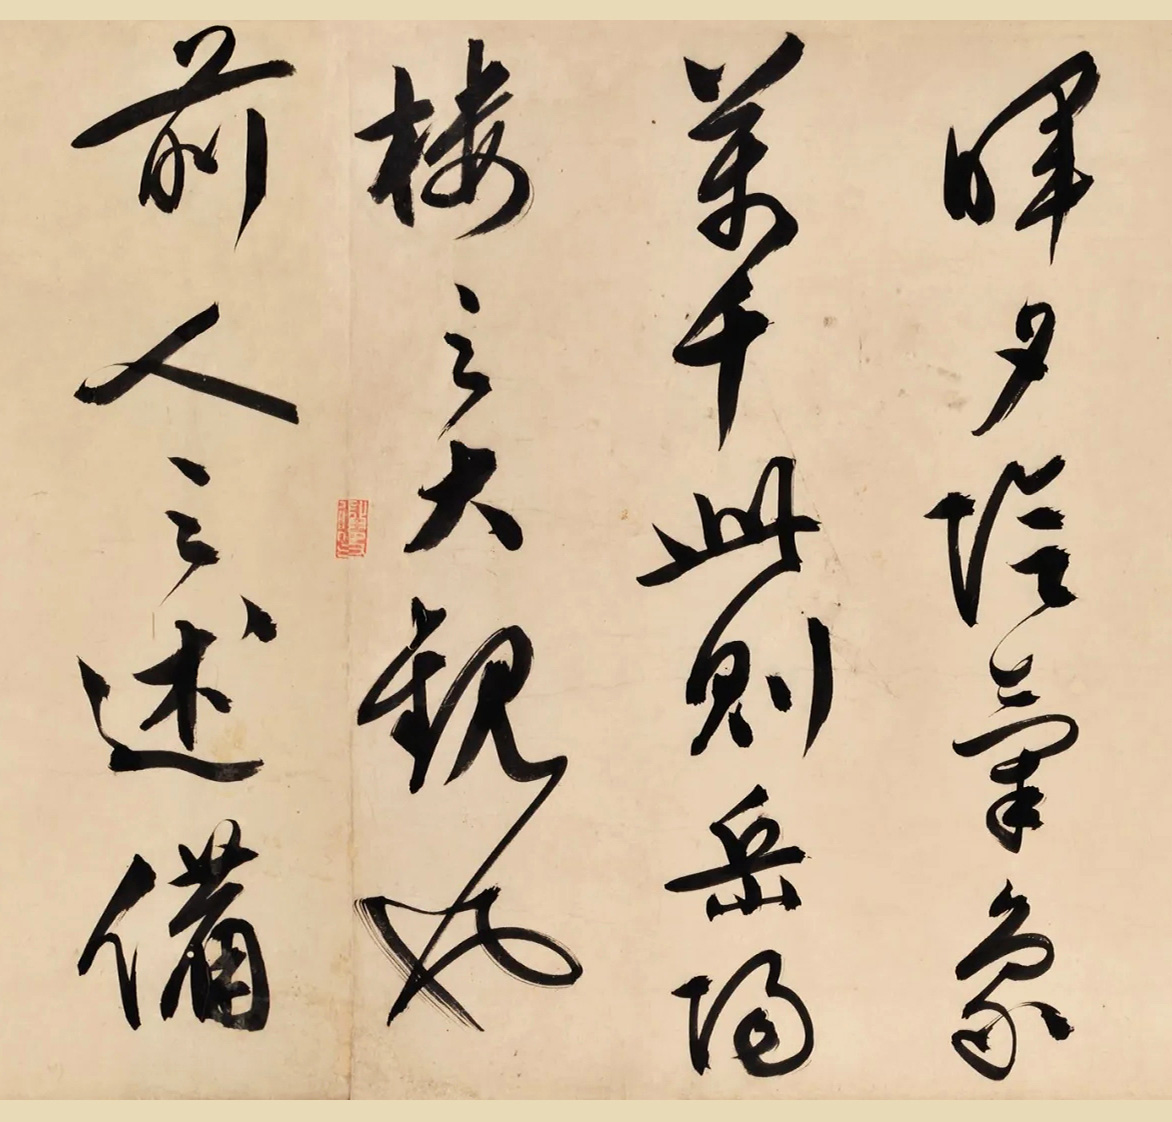 暉夕陰氣象
萬千此則岳陽
樓之大觀也
前人之述備